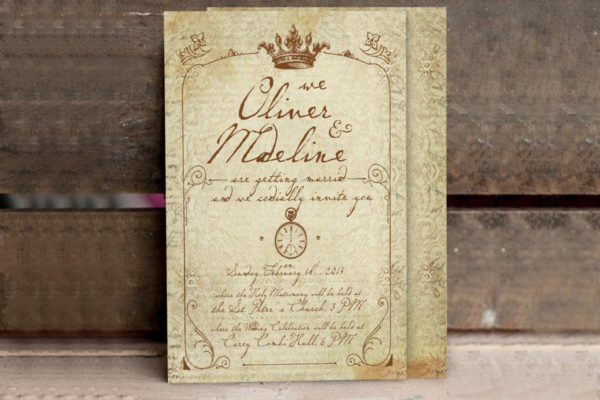 we
Oliver
&
Madeline
are getting married
and we codially invite you
on
Sunday, February 2013
where the Holy Matrimony will be held at
the Sct. Peter's Church, 3 PM
where the Wedding Celebration will be held at
Carey Combe Hall, 6 PM